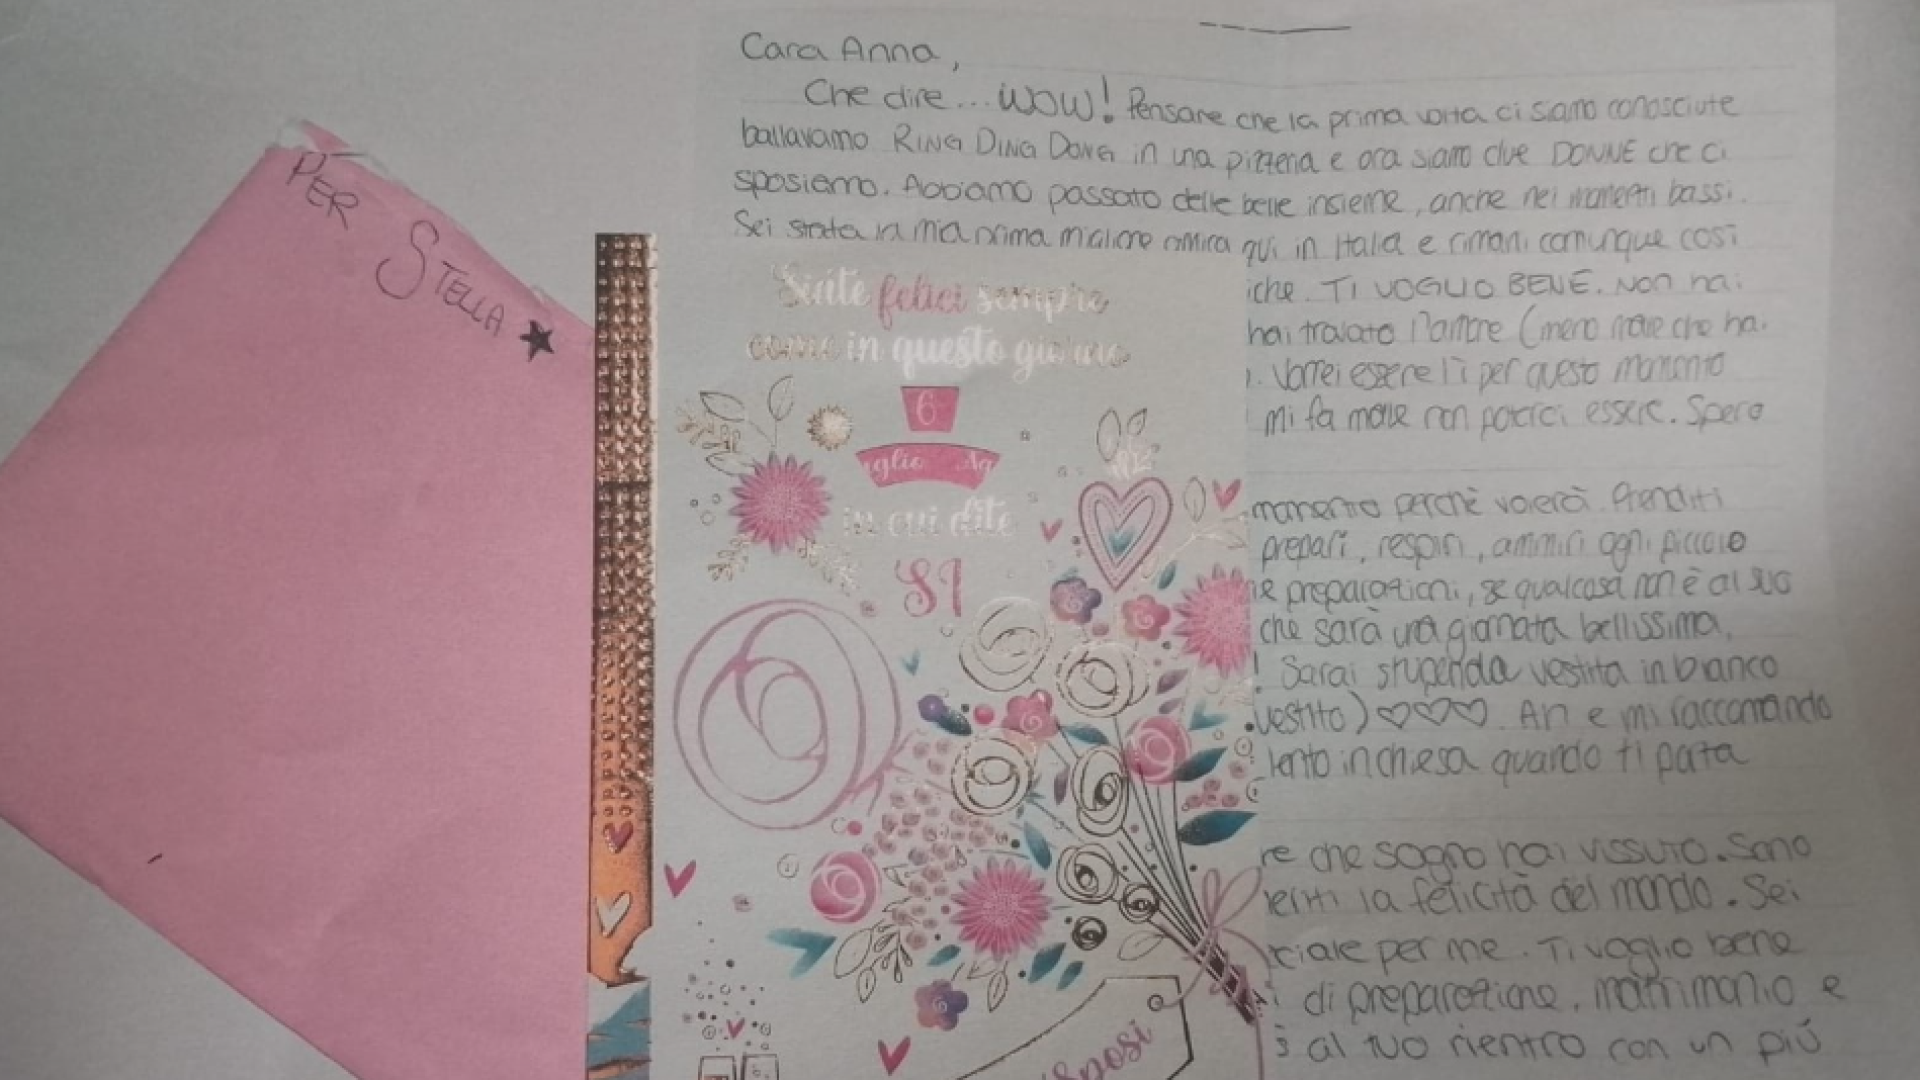 PER STELLA
Cara Anna,
Che dire... WOW! Pensare che la prima volta ci siamo conosciute
ballavamo RING DING DONG in una pizzeria e ora siamo due DONNE che ci
sposiamo. Abbiamo passato delle belle insieme, anche nei momenti bassi.
Sei stata la mia prima migliore amica qui in Italia e rimani comunque così
iche. TI VOGLIO BENE. Non hai
hai trovato l'amore (meno male che ha
. Vorrei essere lì per questo momento
mi fa male non poterci essere. Spero
momento perchè volerà. Prenditi
prepari, respiri, ammiri ogni piccolo
preparazioni, se qualcosa non è al suo
che sarà una giornata bellissima,
! Sarai stupenda vestita in bianco
vestito) ♡♡♡. Ah e mi raccomando
lento in chiesa quando ti porta
re che sogno hai vissuto. Sono
la felicità del mondo. Sei
ciale per me. Ti voglio bene
di preparazione, matrimonio e
al tuo rientro con un più
Siate felici sempre
come in questo giorno
6
in cui dite
SI
Sposi